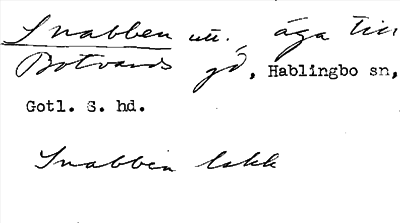 Snabben utt., äga till
Botvards gd, Hablingbo sn,
Gotl. S. hd.
Snabbin